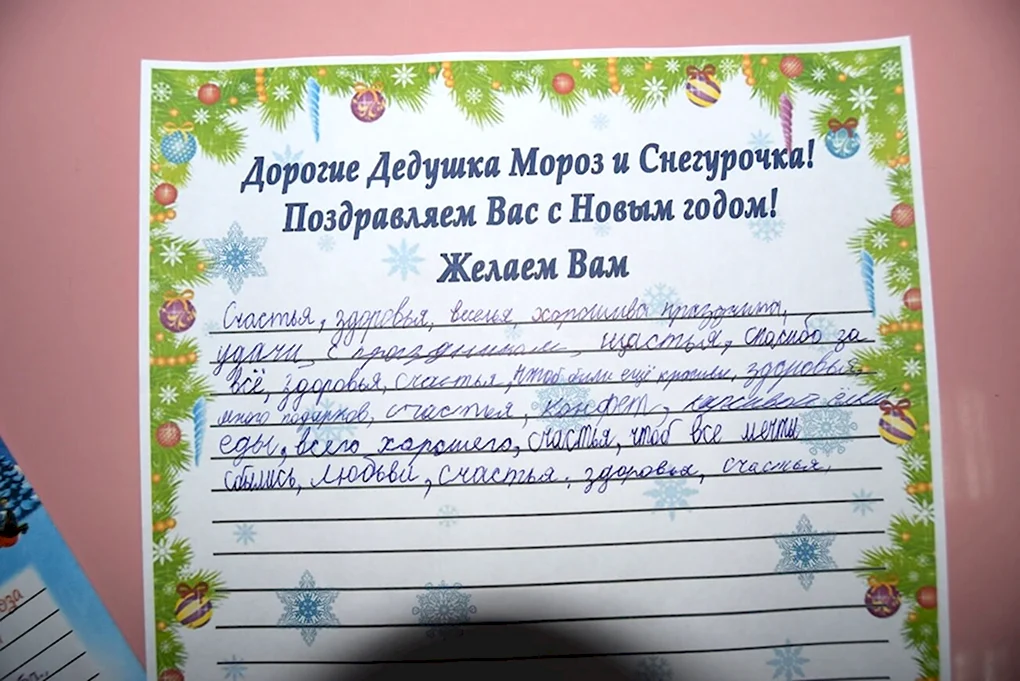 Дорогие Дедушка Мороз и Снегурочка!
Поздравляем Вас с Новым годом!
Желаем Вам
Счастья, здоровья, веселья, хорошива праздника,
удачи, с праздником, щастья, спасибо за
всё, здоровья, счастья, чтоб были ещё красивы, здоровья,
много подарков, счастья, конфет,
еды, всего хорошего, счастья, чтоб все мечты
сбылись, любьви, счастья, здоровья, счастья,